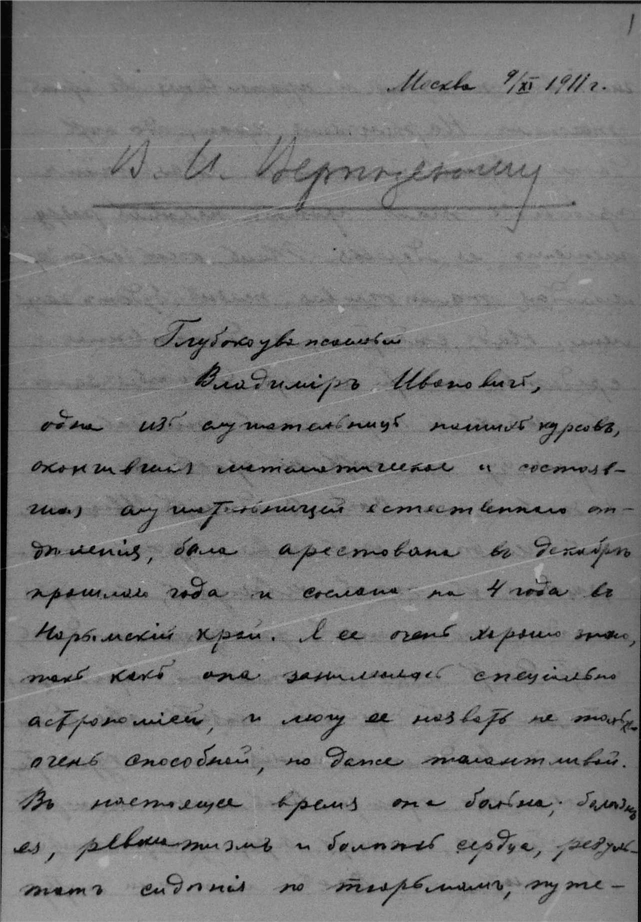 1
Москва 9/XI 1911 г.
В. И. Вернадскому
Глубокоуважаемый
Владиміръ Ивановичъ,
одна изъ слушательницъ нашихъ курсовъ,
окончившая математическое и состояв-
шая слушательницей естественнаго от-
дѣленія, была арестована въ декабрѣ
прошлаго года и сослана на 4 года въ
Нарымскій край. Я ее очень хорошо знаю,
такъ какъ она занималась спеціально
астрономіей, и могу ее назвать не только
очень способной, но даже талантливой.
Въ настоящее время она больна; болѣзнь
ея, ревматизмъ и болѣзнь сердца, резуль-
татъ сидѣнія по тюрьмамъ, путе-